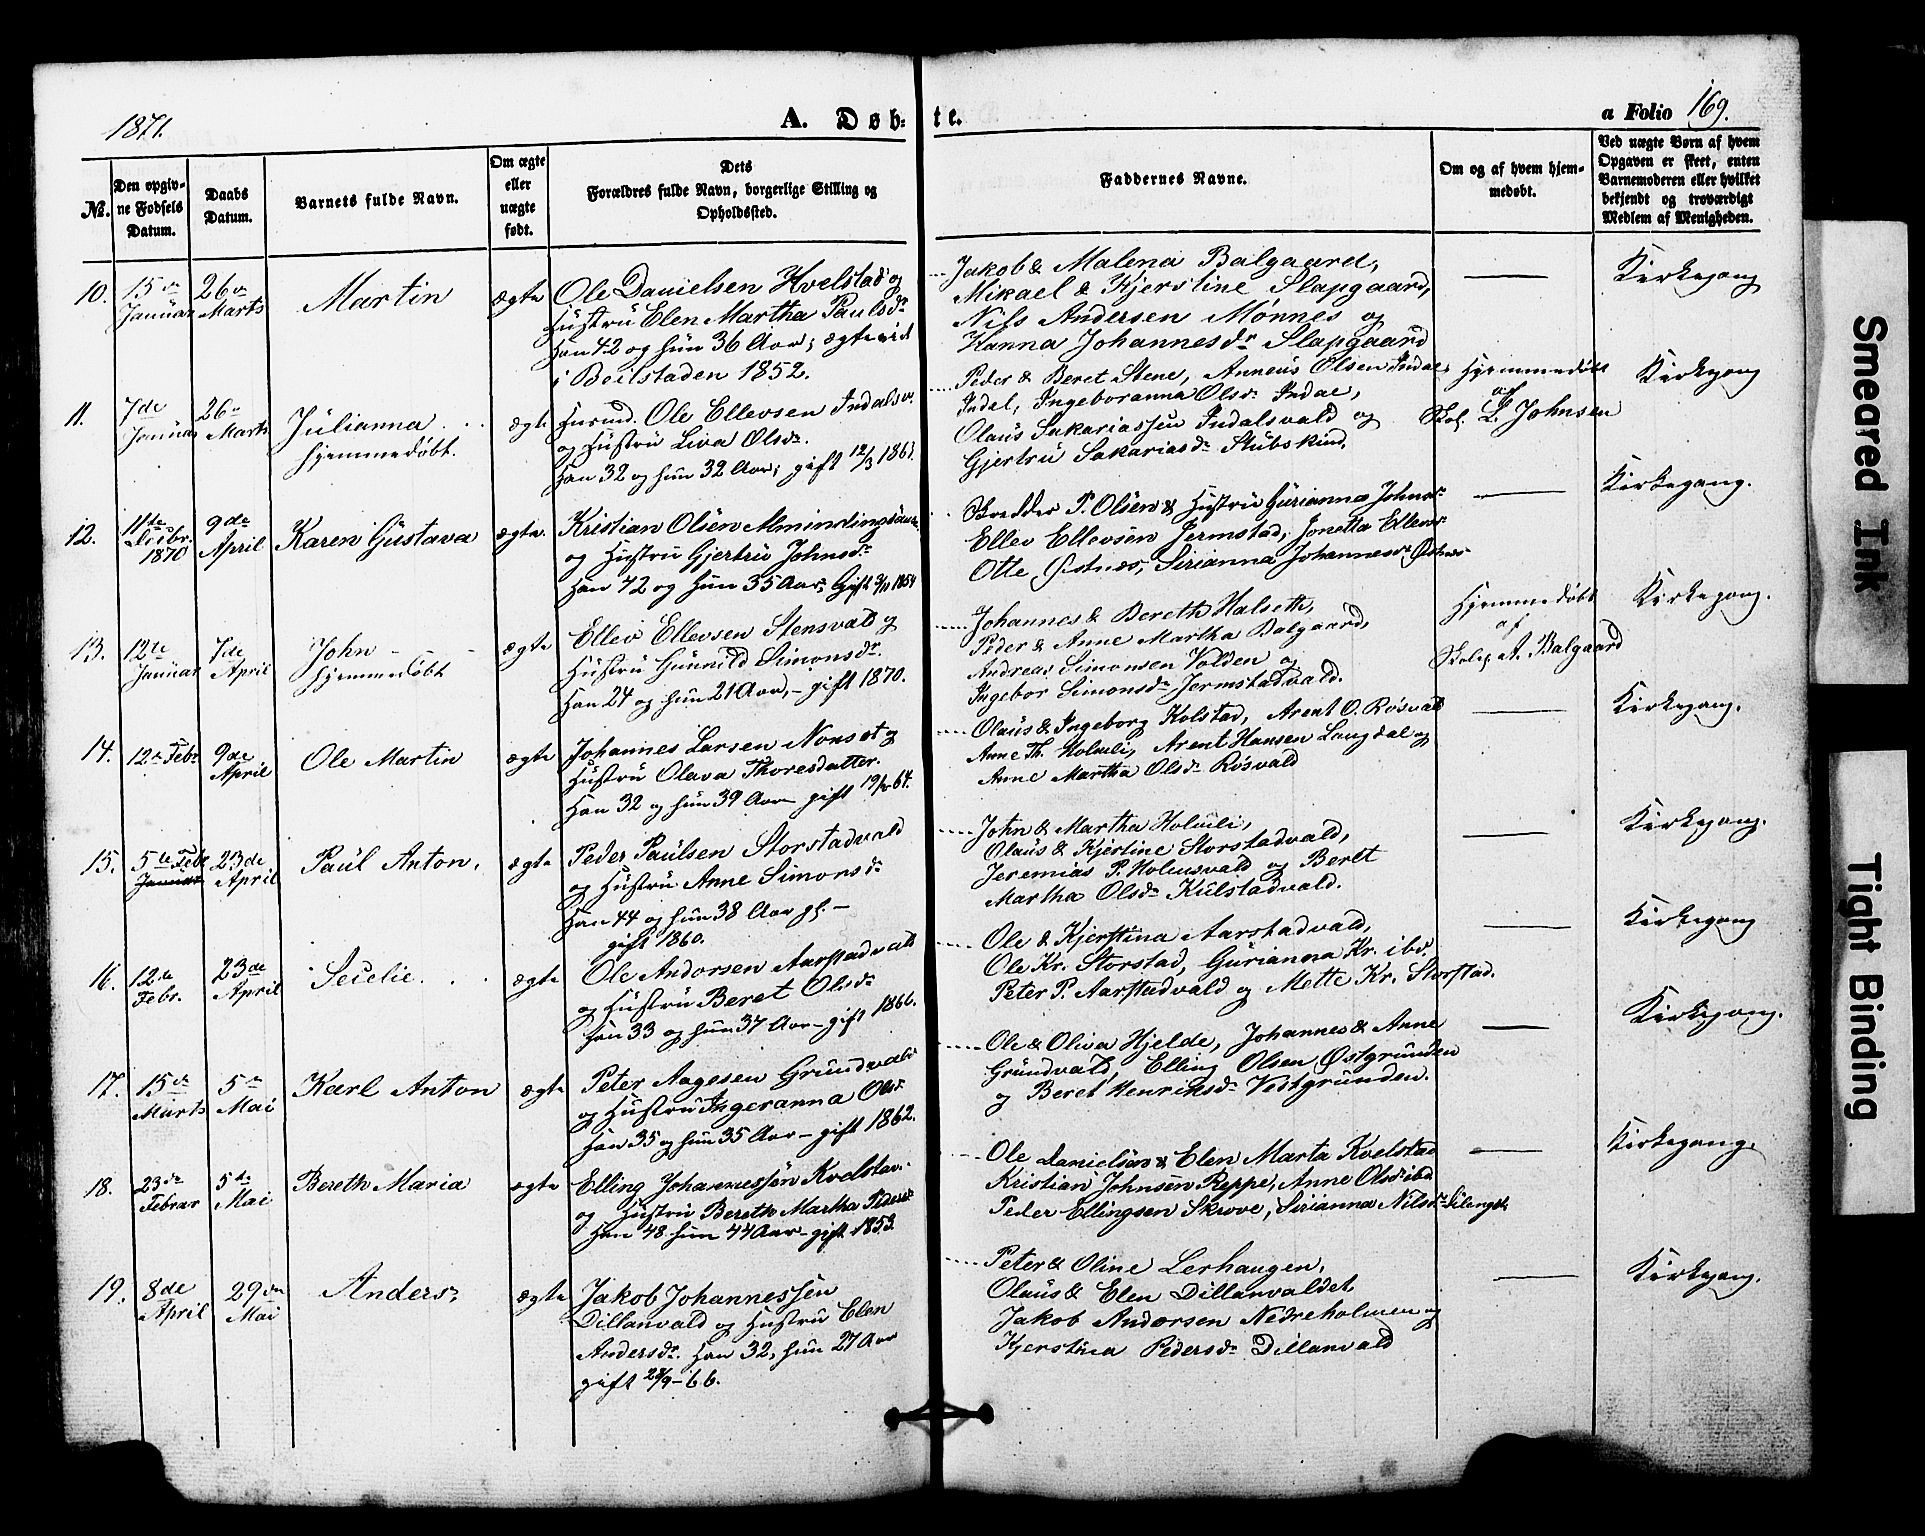 1871.
A. Døb-
te.
a Folio 169.
№.
Den opgiv-
ne Fødsels
Datum.
Daabs
Datum.
Barnets fulde Navn.
Om ægte
eller
uægte
født.
Dets
Forældres fulde Navn, borgerlige Stilling og
Opholdssted.
Faddernes Navne.
Om og af hvem hjem-
medøbt.
Ved uægte Børn af hvem
Opgaven er skeet, enten
Barnemoderen eller hvilket
bekjendt og troværdigt
Medlem af Menigheden.
10.
15de
Januar
26de
Marts
Martin
ægte
Ole Danielsen Kvelstad og
Hustru Elen Martha Paulsdr
Han 42 og hun 36 Aar; ægteviet
i Beilstaden 1852.
Jakob & Malena Balgaard,
Mikael & Kjerstine Slapgaard,
Nils Andersen Mønnes og
Hanna Johannesdr Slapgaard
Kirkegang
11.
7de
Januar
26de
Marts
Julianna
hjemmedøbt.
ægte
Husmd. Ole Ellevsen Indalsv.
og Hustru Liva Olsdr.
Han 32 og hun 32 Aar; gift 12/3 186
Peder & Beret Stene, Anneus Olsen Indal,
Indal, Ingeboranna Olsdr Indal,
Olaus Sakariassen Indalsvald og
Gjertru Sakariasdr Stubskind.
Hjemmedøbt
af
Skol. L. Johnsen
Kirkegang
12.
11te
Decbr.
1870
9de
April
Karen Gustava
ægte.
Kristian Olsen
og Hustru Gjertru Johnsdr
Han 42 og hun 35 Aar, Gift 3/11 1854
Skredder P. Olsen & Hustru Gurianna Johnsdr
Ellev Ellevsen Jermstad, Jonetta Ellevsdr
Otte Østnes, Sirianna Johannesdr Østnes
Kirkegang.
13.
12te
Januar
7de
April
John
hjemmedøbt
ægte
Ellev Ellevsen Stensvald og
Hustru Gunnild Simonsdr.
Han 24 og hun 21 Aar, – gift 1870.
Johannes & Bereth Halseth,
Peder & Anne Martha Balgaard,
Andreas Simonsen Volden og
Ingebor Simonsdr Jermstadvald.
Hjemmedøbt
af
Skolel. A. Balgaard
Kirkegang.
14.
12te Febr
9de
April
Ole Martin
ægte
Johannes Larsen Nonset og
Hustru Olava Thoresdatter.
Han 32 og hun 39 Aar gift 64.
Olaus & Ingeborg Kolstad, Arent O. Røsvald
Anne Th. Holmli, Arent Hansen Langdal og
Anne Martha Olsdr Røsvald
Kirkegang.
15.
5te Febr
Januar
23de
April
Paul Anton,
ægte
Peder Paulsen Storstadvald
og Hustru Anne Simonsdr
Han 44 og hun 38 Aar gl. –
gift 1860.
John & Martha Holmli,
Olaus & Kjerstine Storstadvald,
Jeremias P. Holmsvald og Beret
Martha Olsdr Kulstadvald.
Kirkegang.
16.
12te
Febr.
23de
April
Secelie
ægte
Ole Andorsen Aarstadvald
og Hustru Beret Olsdr
han 33 og hun 37 Aar – gift 1866.
Ole & Kjerstina Aarstadvald,
Ole Kr. Storstad, Gurianna Kr. ibd.
Peter P. Aarstadvald og Mette Kr. Storstad.
Kirkegang
17.
15de
Marts
5te
Mai
Karl Anton
ægte
Peter Aagesen Grundvald
og Hustru Ingeranna Olsdr
han 35 og hun 35 Aar – gift 1862.
Ole & Oliva Hjelde, Johannes & Anne
Grundvald, Elling Olsen Østgrunden
og Beret Henriksdr Vestgrunden.
Kirkegang.
18.
23de
Februar
5te
Mai
Bereth Maria
ægte
Elling Johannessen Kvelstad
og Hustru Bereth Martha Pedersdr
Han 48. hun 44 Aar – gift 1853.
Ole Danielsen & Elen Marta Kvelstad
Kristian Johnsen Reppe, Anne Olsdr ibd
Peder Ellingsen Skrove, Sirianna Nilsdr
Kirkegang.
19.
8de
April
29de
Mai
Anders
ægte
Jakob Johannessen
Dillanvald og Hustru Elen
Andersdr. Han 32, hun 27 Aar
gift 28/9–66.
Peter & Oline Lerhaugen,
Olaus & Elen Dillanvaldet,
Jakob Andersen Nedreholmen og
Kjerstina Pedersdr Dillanvald
Kirkegang.
Smeared Ink
Tight Binding